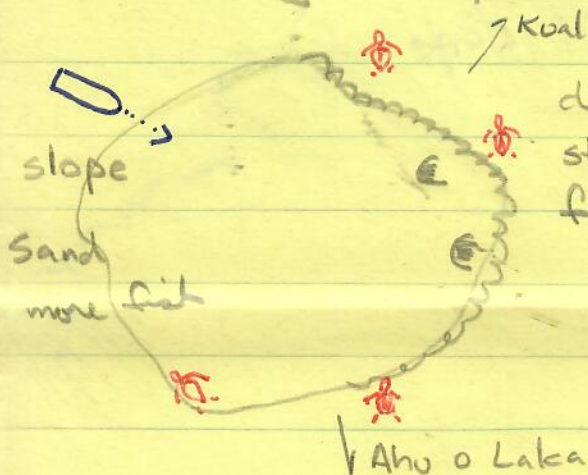 Kual
d
st
f
slope
Sand
more fish
Ahu o Laka